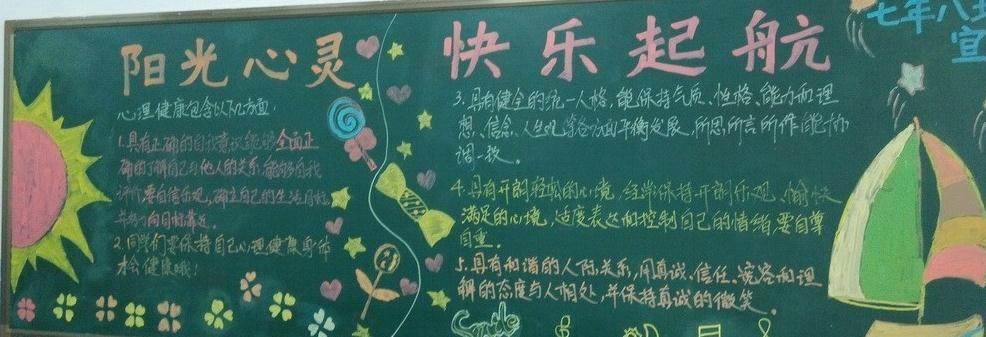 阳光心灵
快乐起航
七年八班
宣
心理健康包含以下几方面:
1.具有正确的自我意识能够全面正
确的了解自己与他人的关系,能够自我
评价,要自信乐观,确立自己的生活目标,
并努力向目标靠近。
2.同学们要保持自己心理健康身体
才会健康哦!
3.具有健全的统一人格,能保持气质、性格、能力和理
想、信念、人生观等各方面平衡发展,所思所言所作能协
调一致。
4.具有开朗轻松的心境,经常保持开朗乐观、愉快
满足的心境,适度表达和控制自己的情绪,要自尊
自重。
5.具有和谐的人际关系,用真诚、信任、宽容和理
解的态度与人相处,并保持真诚的微笑。